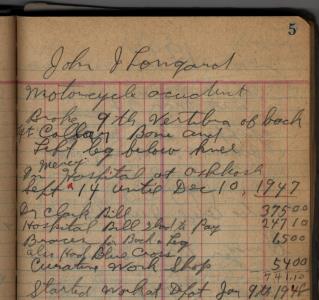 5
John J Longard
Motorcycle accident
Broke 9th Vertibra of back
Collar Bone and
Left leg below knee
Mercy
In Hospital at Oshkosh
Sept 14 until Dec 10, 1947
Dr Clark Bill 375 00
Hospital Bill I had to Pay 247 10
Braces for Back & Leg 65 00
also Had Blue Cross
Curative Work Shop 54 00
741.10
Started Work at Dfot Jan 9th 1948